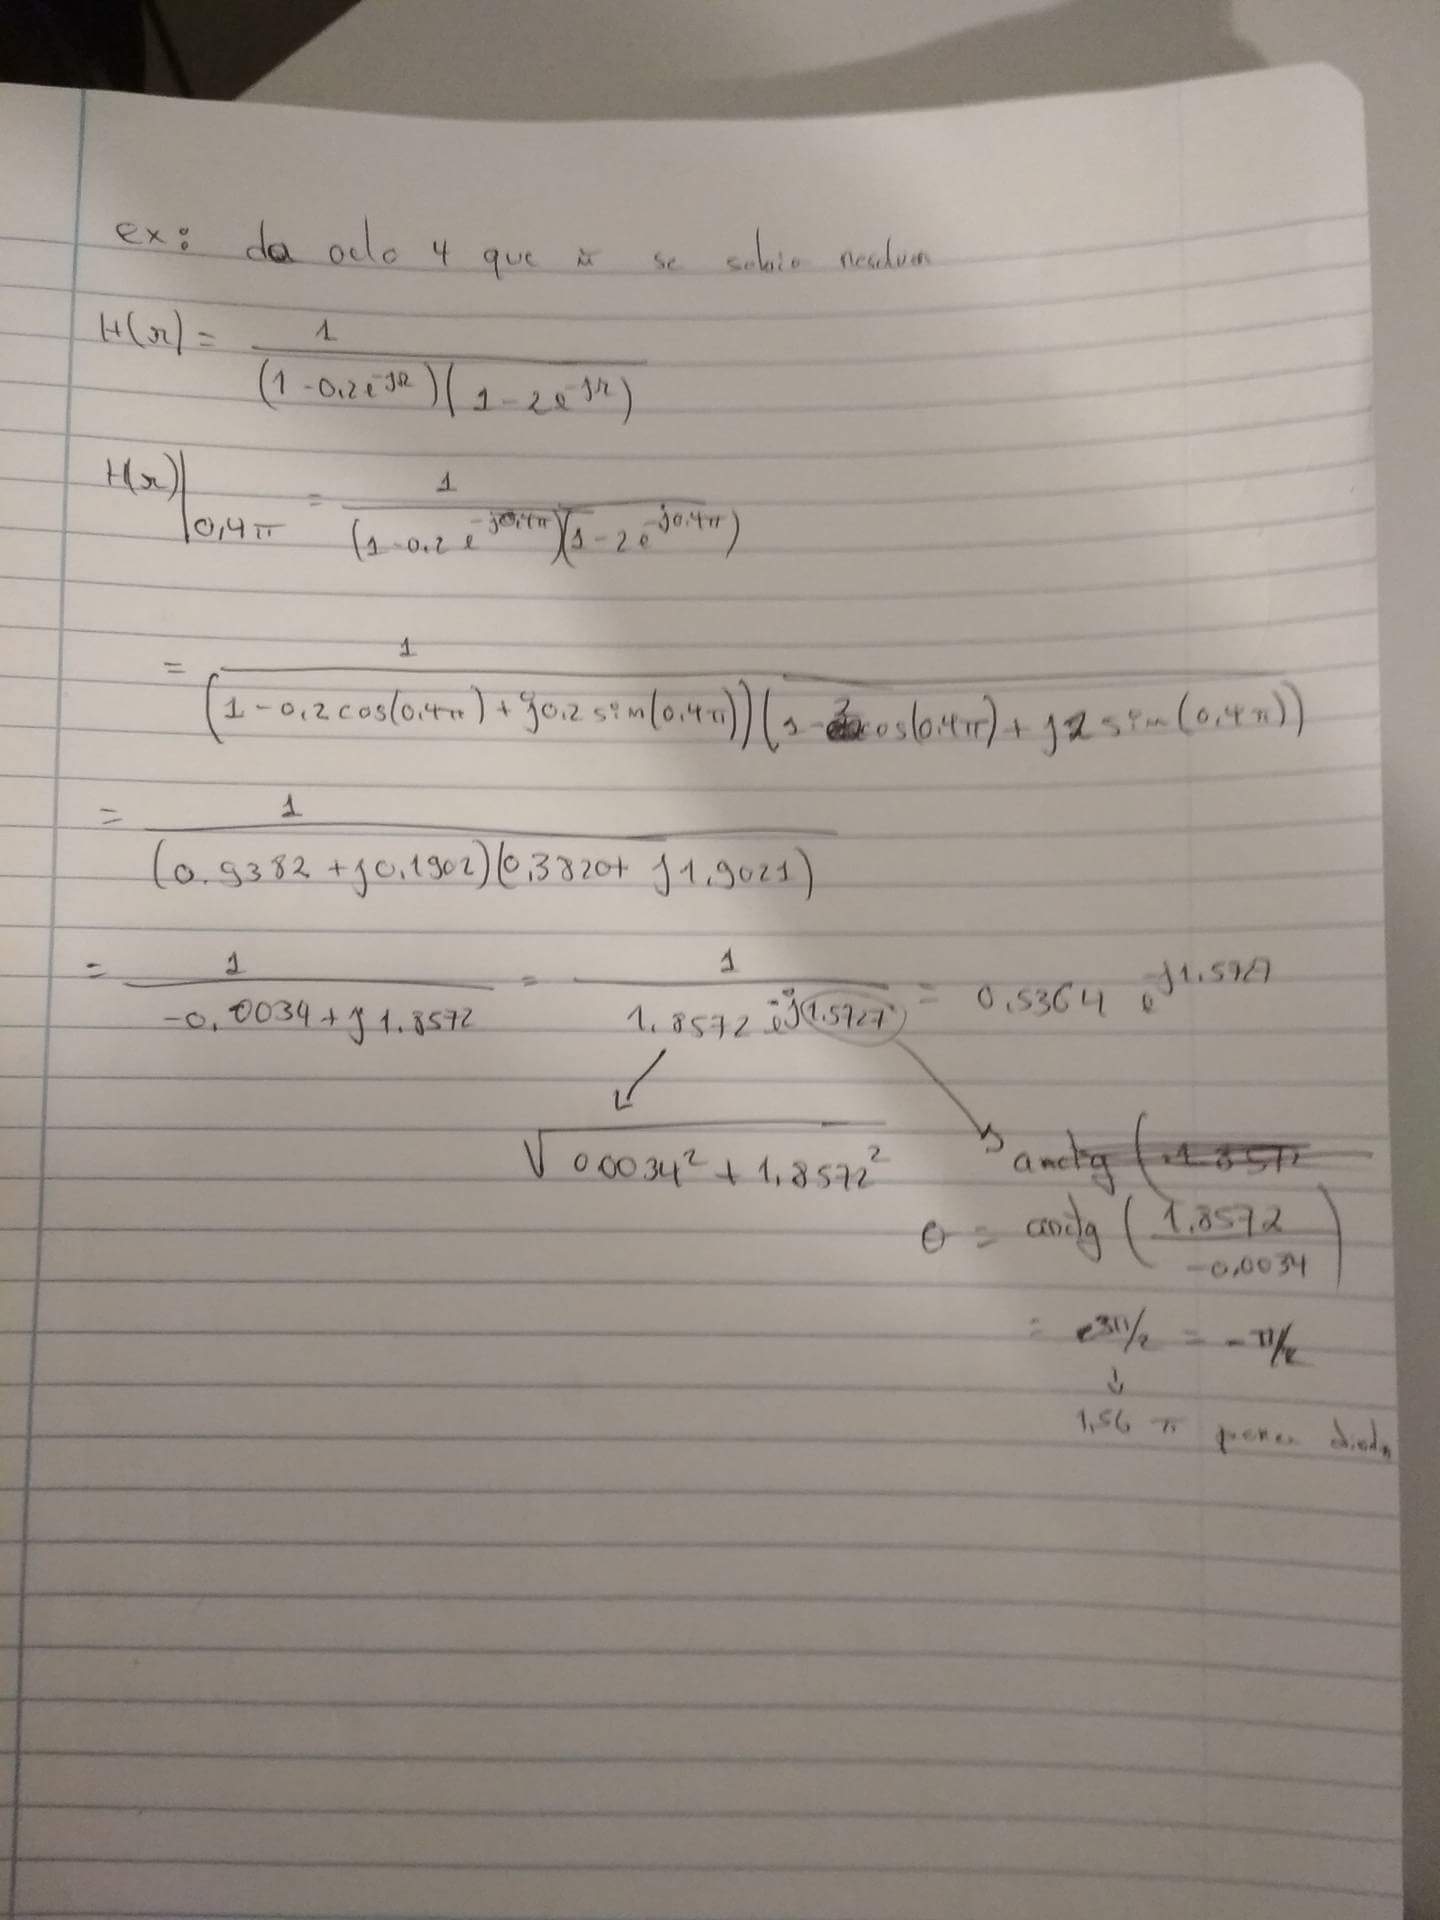 ex: da aula 4 que ñ se sabia resolver
H(Ω) = 1 / (1 - 0,2 e^-jΩ)(1 - 2 e^-jΩ)
H(Ω)|0,4π = 1 / (1 - 0.2 e^-j0,4π)(1 - 2 e^-j0.4π)
= 1 / (1 - 0,2 cos(0,4π) + j0.2 sin(0,4π))(1 - 2 cos(0,4π) + j2 sin(0,4π))
= 1 / (0.9382 + j0,1902)(0,3820 + j1,9021)
= 1 / -0,0034 + j1.8572 = 1 / 1.8572 e^j(1.5727) = 0,5364 e^j1.5727
√ 0.0034² + 1.8572²
arctg (
θ = arctg ( 1.8572 / -0,0034 )
= 3π/2 = -π/2
↓
1,56 π